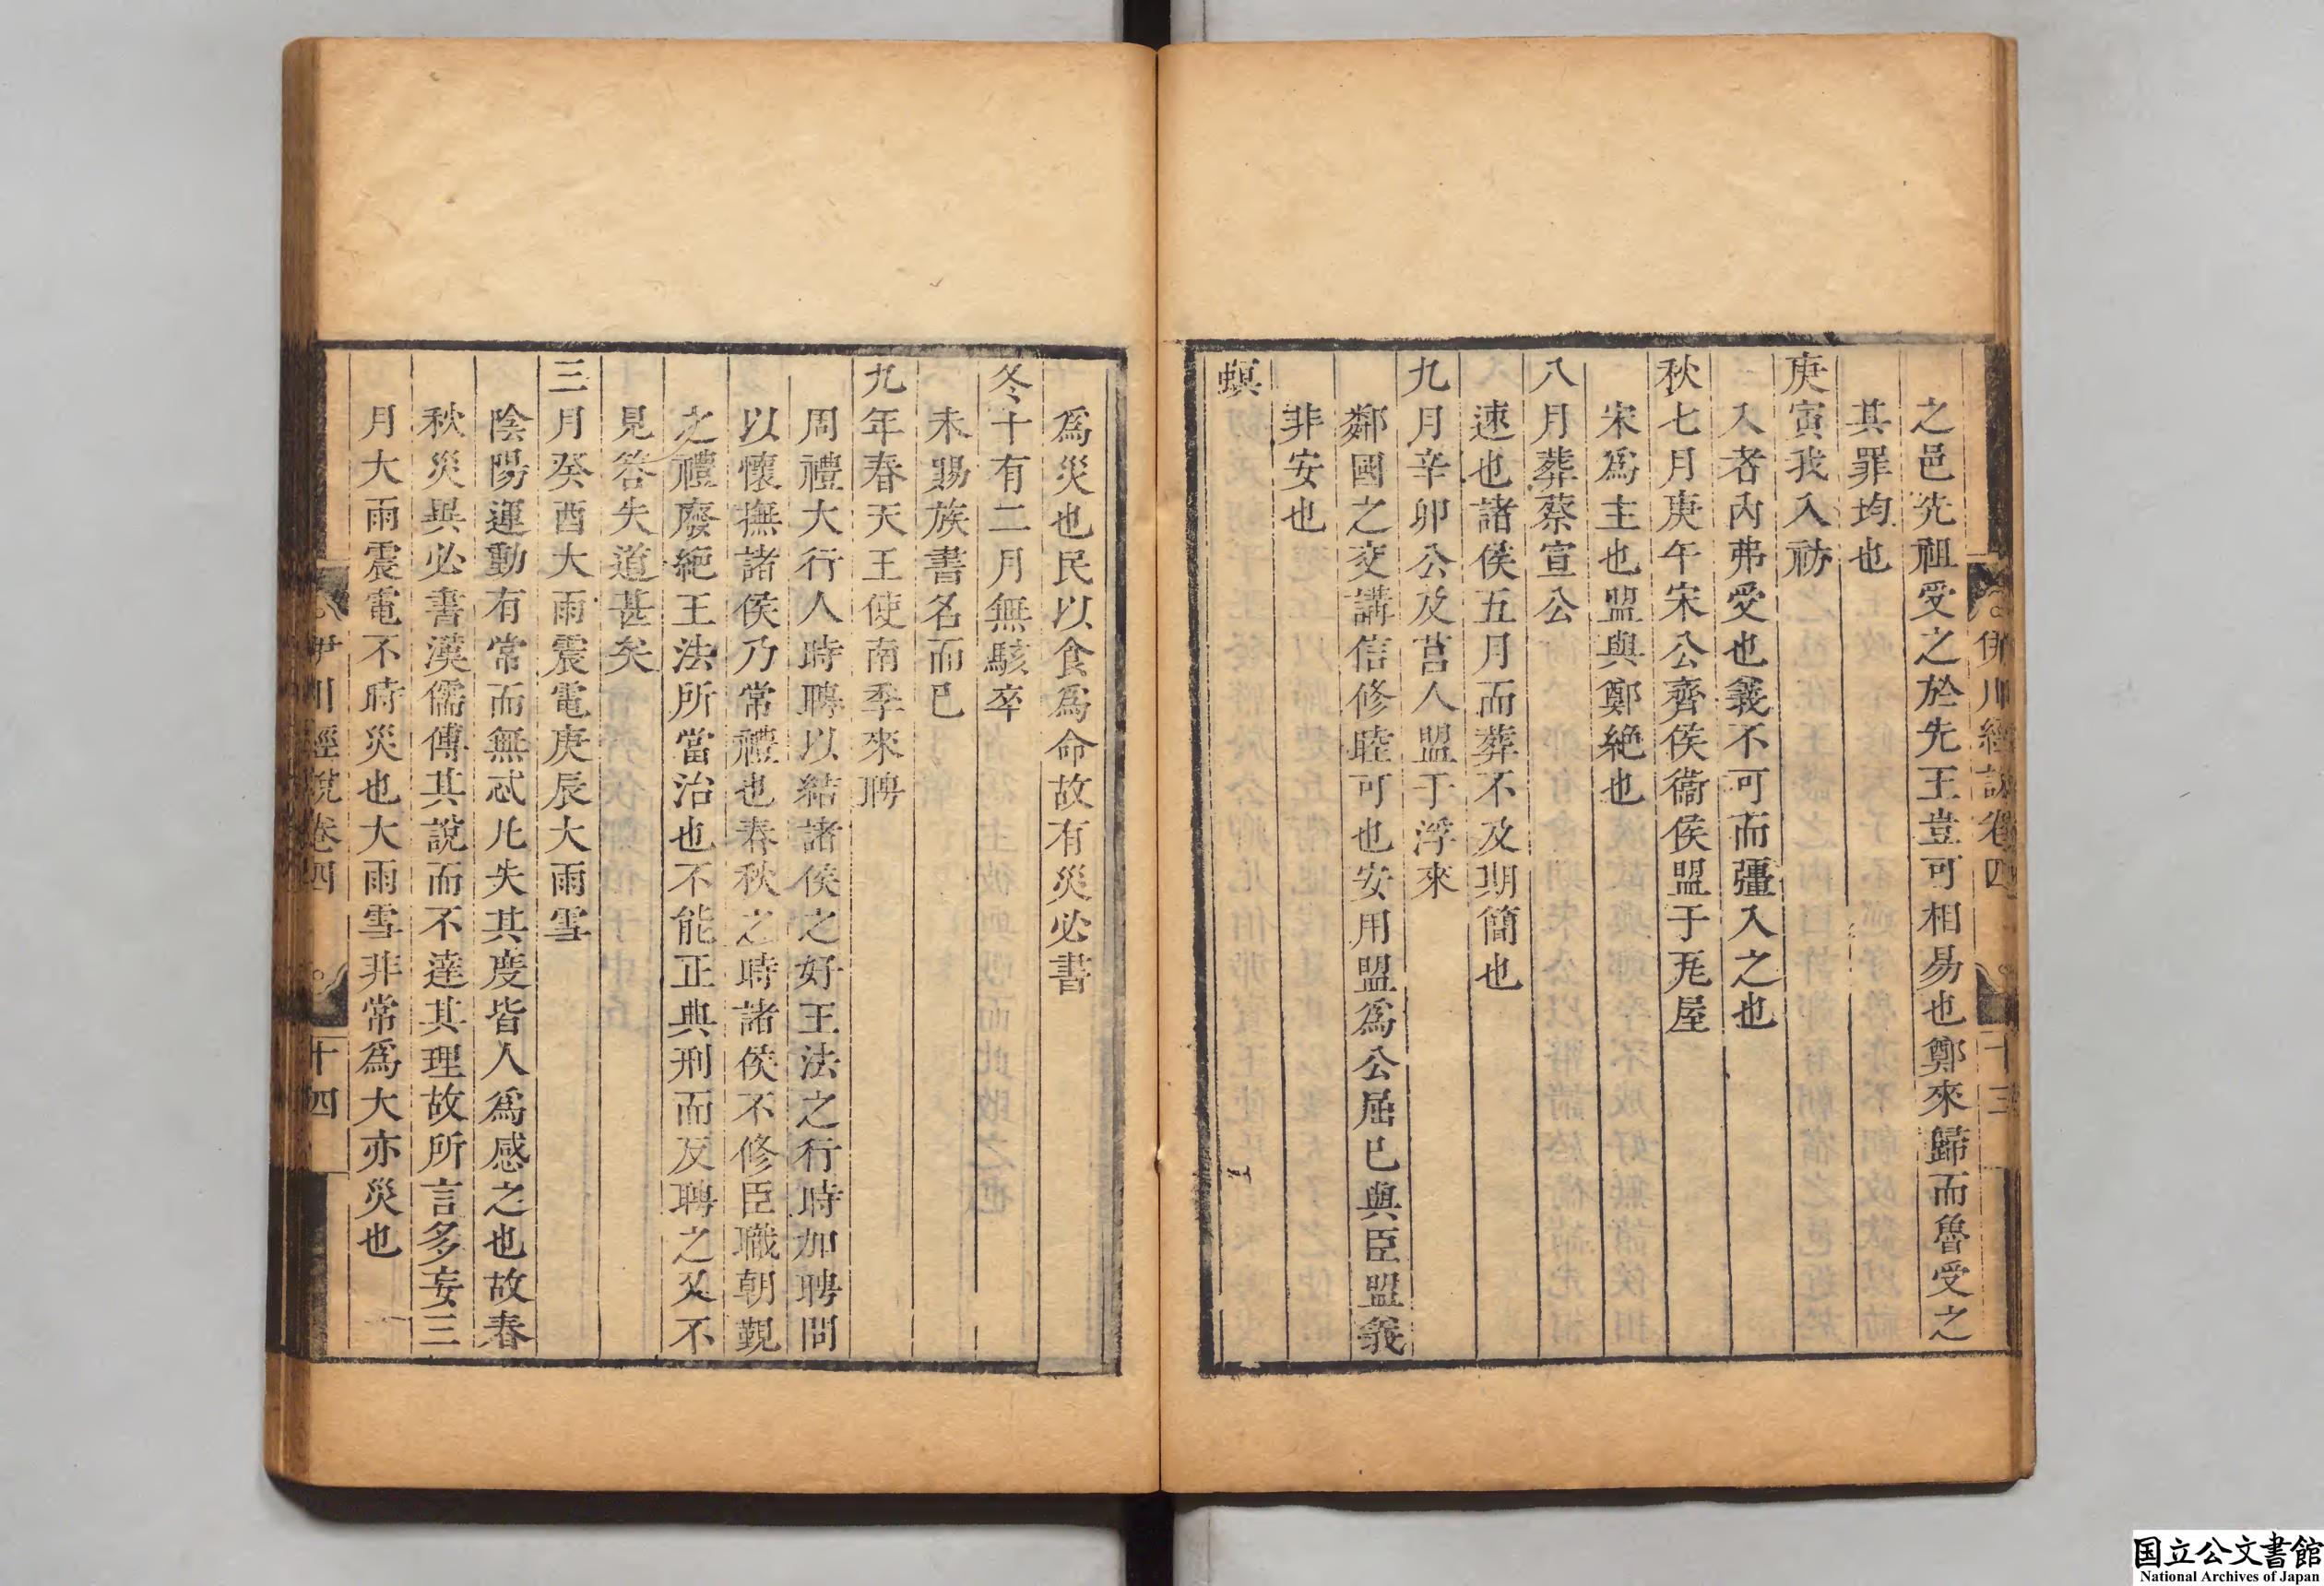 伊川經說卷四
十三
之邑先祖受之於先王豈可相易也鄭來歸而魯受之
其罪均也
庚寅我入祊
入者內弗受也義不可而彊入之也
秋七月庚午宋公齊侯衞侯盟于瓦屋
宋爲主也盟與鄭絶也
八月葬蔡宣公
速也諸侯五月而葬不及期簡也
九月辛卯公及莒人盟于浮來
鄰國之交講信修睦可也安用盟爲公屈已與臣盟義
非安也
螟
爲災也民以食爲命故有災必書
冬十有二月無駭卒
未賜族書名而已
九年春天王使南季來聘
周禮大行人時聘以結諸侯之好王法之行時加聘問
以懷撫諸侯乃常禮也春秋之時諸侯不修臣職朝覲
之禮廢絶王法所當治也不能正典刑而反聘之又不
見答失道甚矣
三月癸酉大雨震電庚辰大雨雪
陰陽運動有常而無忒凡失其度皆人爲感之也故春
秋災異必書漢儒傳其說而不達其理故所言多妄三
月大雨震電不時災也大雨雪非常爲大亦災也
伊川經說卷四
十四
国立公文書館
National Archives of Japan